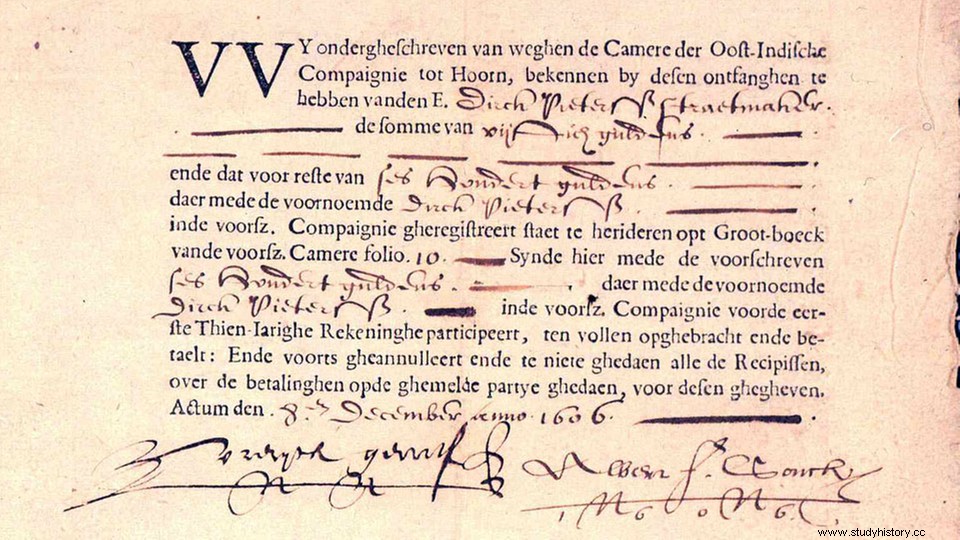 VVY ondergheschreven van weghen de Camere der Oost-Indische
Compaignie tot Hoorn, bekennen by desen ontfanghen te
hebben vanden E. Dirck Pieters Straetmaker.
de somme van guldens.
ende dat voor reste van ses hondert guldens.
daer mede de voornoemde Dirck Pieters
inde voorsz. Compaignie gheregistreert staet te herideren opt Groot-boeck
vande voorsz. Camere folio. 10. Synde hier mede de voorschreven
ses hondert guldens. daer mede de voornoemde
Dirck Pieters inde voorsz. Compaignie voorde eer-
ste Thien-Iarighe Rekeninghe participeert, ten vollen opghebracht ende be-
taelt: Ende voorts gheannulleert ende te niete ghedaen alle de Recipissen,
over de betalinghen opde ghemelde partye ghedaen, voor desen ghegheven.
Actum den. 8. December anno. 1606.
1606
www.studyhistory.cc